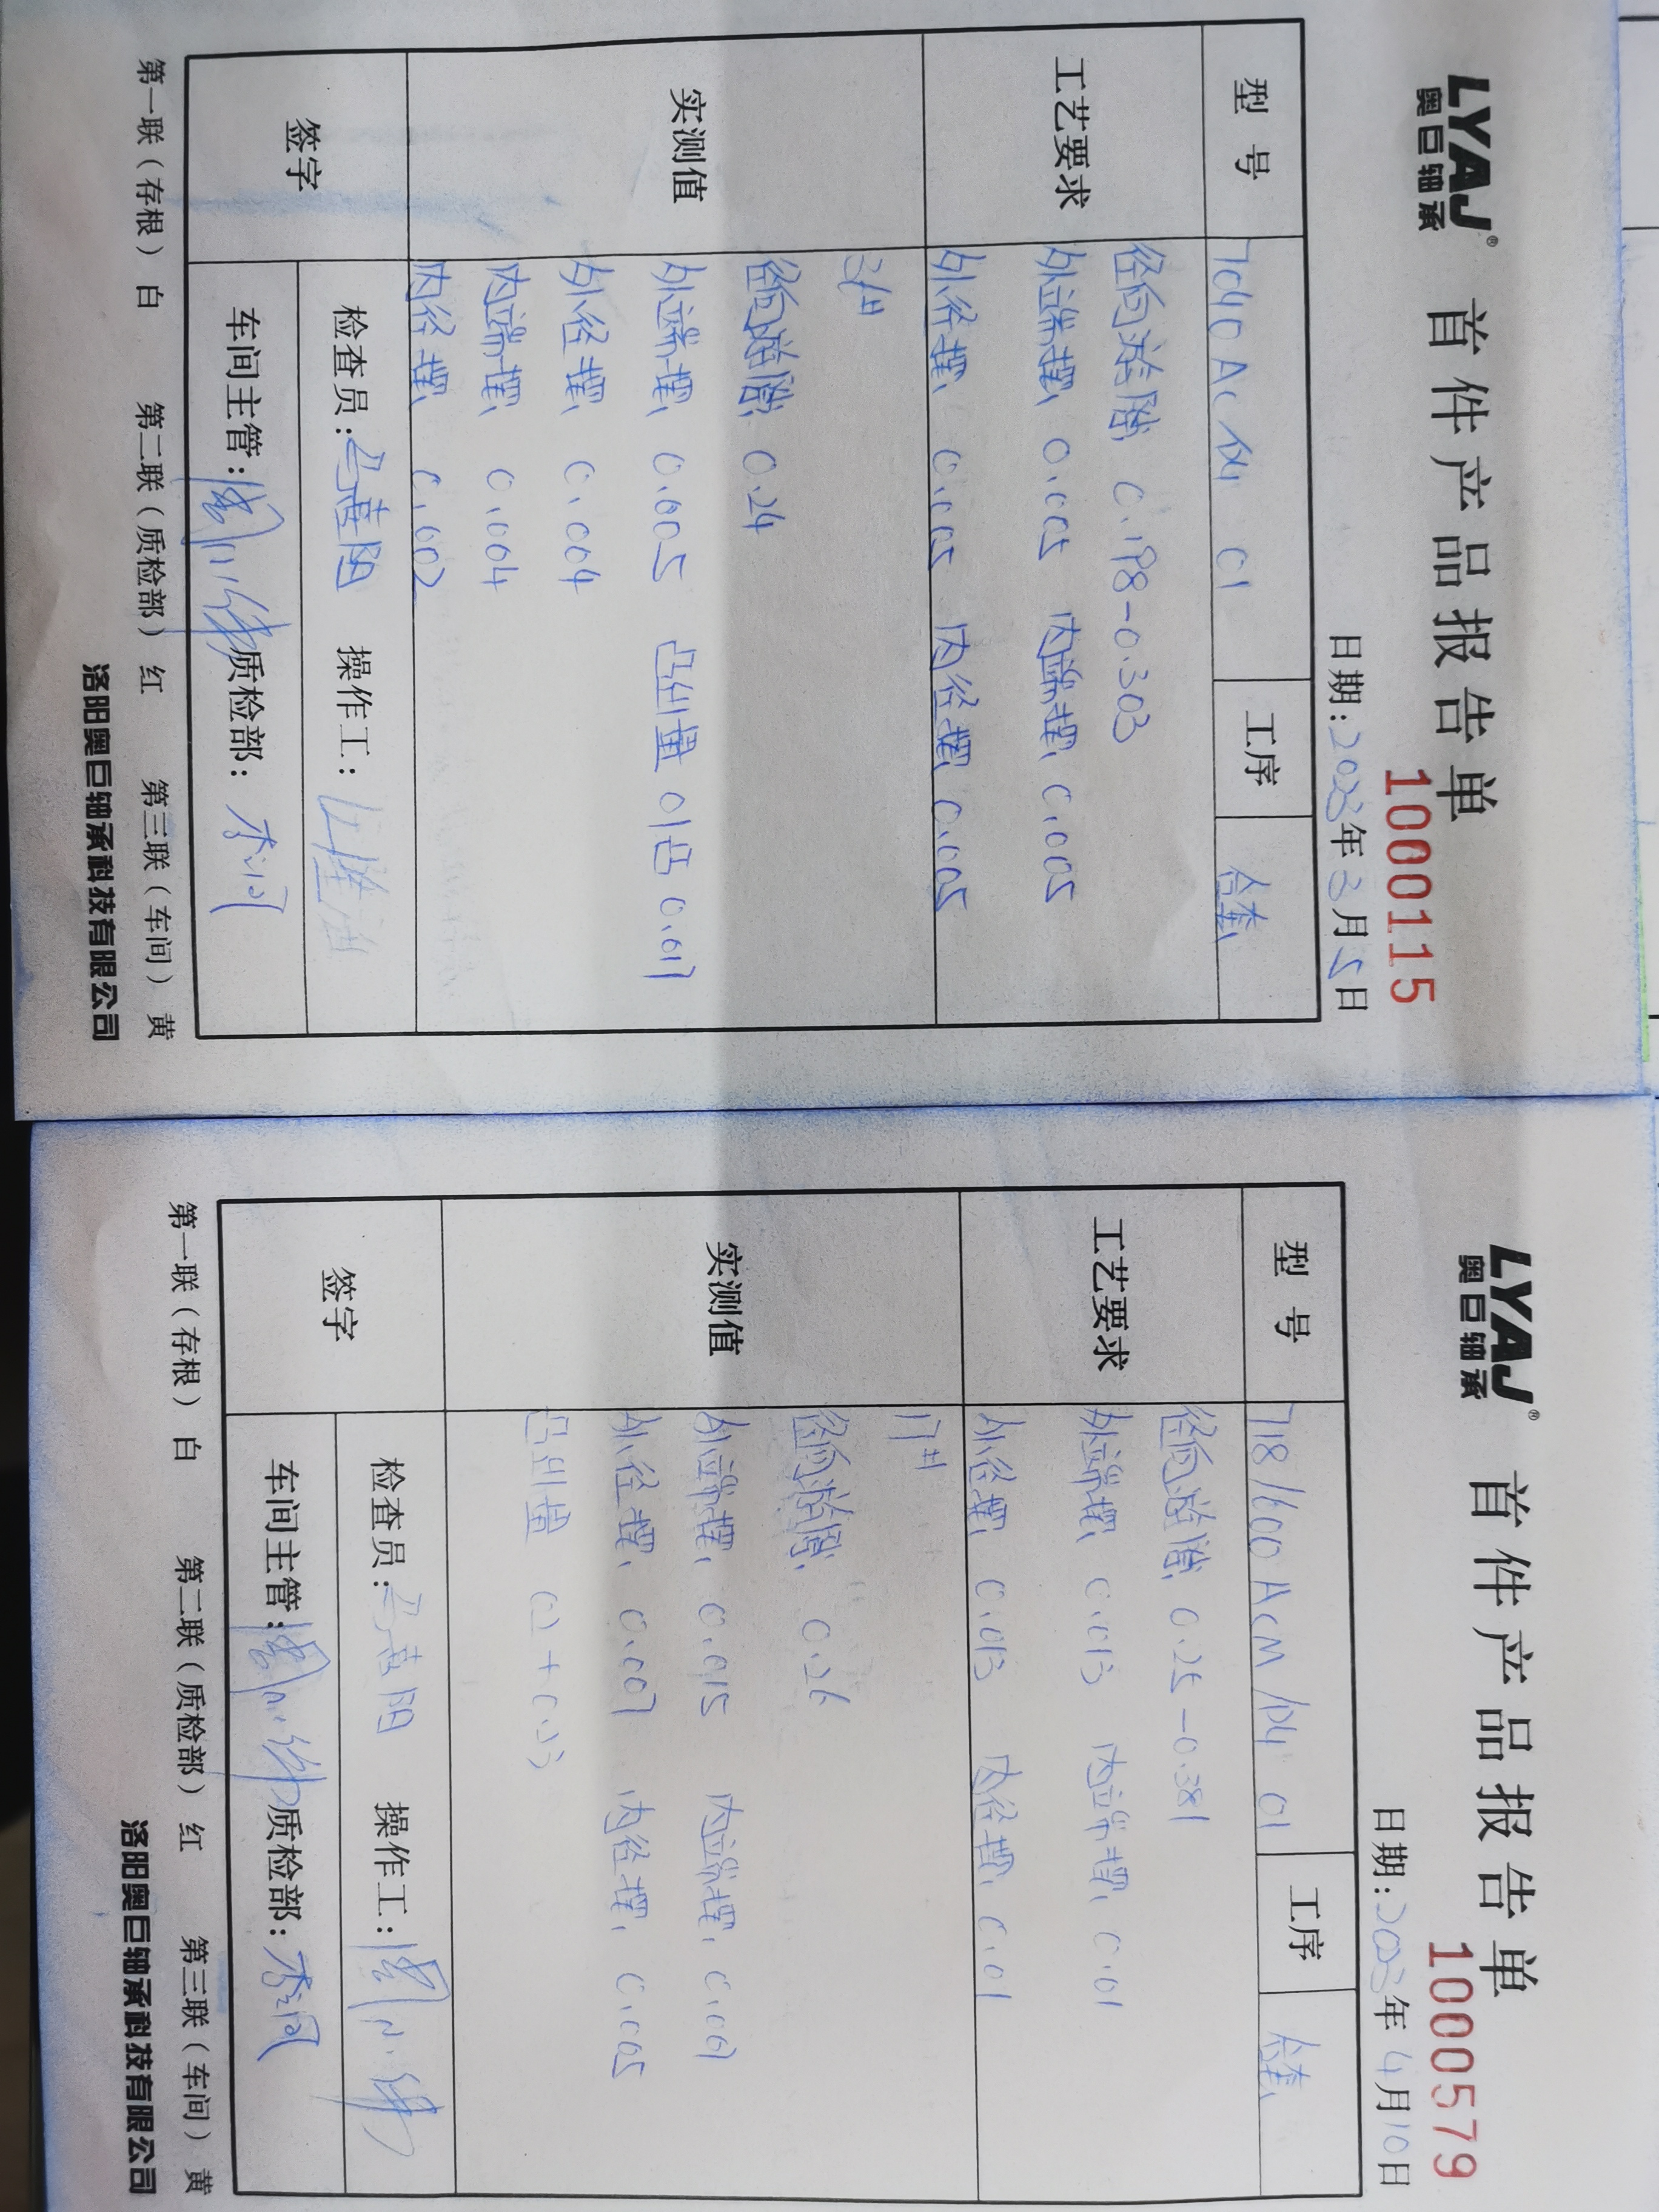 LYAJ®
奥巨轴承
首件产品报告单
1000115
日期:2023年3月5日
型号 7040AC/P4 01 工序 合套
工艺要求
径向游隙 0.198-0.303
外端摆 0.005 内端摆 0.005
外径摆 0.005 内径摆 0.005
实测值
3#
径向游隙 0.24
外端摆 0.005 凸出量 01凸0.017
外径摆 0.004
内端摆 0.004
内径摆 0.002
签字
检查员: 操作工:
车间主管: 质检部:
第一联(存根)白 第二联(质检部)红 第三联(车间)黄
洛阳奥巨轴承科技有限公司
LYAJ®
奥巨轴承
首件产品报告单
1000579
日期:2023年4月10日
型号 718/600ACM/P4 01 工序 合套
工艺要求
径向游隙 0.25-0.381
外端摆 0.013 内端摆 0.01
外径摆 0.013 内径摆 0.01
实测值
17#
径向游隙 0.26
外端摆 0.015 内端摆
外径摆 0.007 内径摆 0.005
凸出量
签字
检查员: 操作工:
车间主管: 质检部:
第一联(存根)白 第二联(质检部)红 第三联(车间)黄
洛阳奥巨轴承科技有限公司